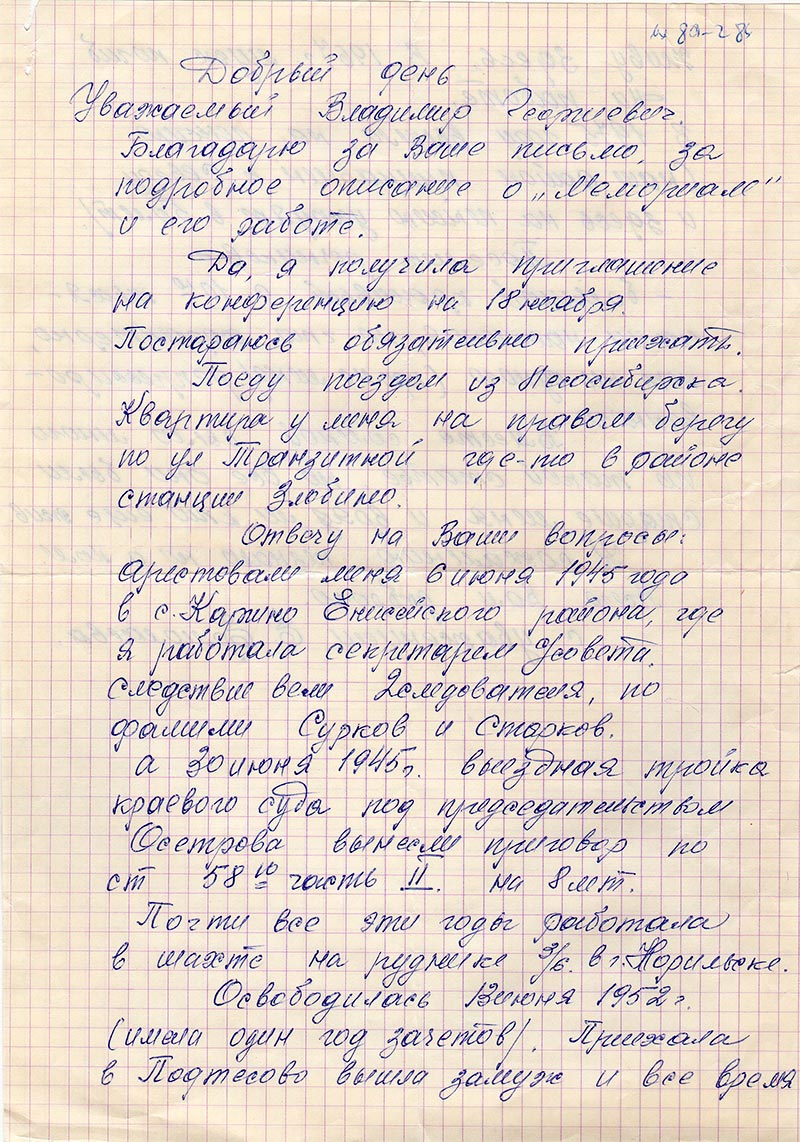 Добрый день
Уважаемый Владимир Георгиевич.
Благадарю за Ваше письмо, за
подробное описание о „Мемориале"
и его работе.
Да, я получила приглашение
на конференцию на 18 ноября.
Постараюсь обязательно приехать.
Поеду поездом из Лесосибирска.
Квартира у меня на правом берегу
по ул Транзитной где-то в районе
станции Злобино.
Отвечу на Ваши вопросы:
арестовали меня 6 июня 1945 года
в с. Каргино Енисейского района, где
я работала секретарем с/совета.
следствие вели 2 следователя, по
фамилии Сурков и Старков.
а 30 июня 1945 г. выездная тройка
краевого суда под председательством
Осетрова вынесли приговор по
ст 58 10 часть II. на 8 лет.
Почти все эти годы работала
в шахте на руднике 3/6. в г. Норильске.
Освободилась 13 июня 1952 г.
(имела один год зачетов). Приехала
в Подтесово вышла замуж и все время